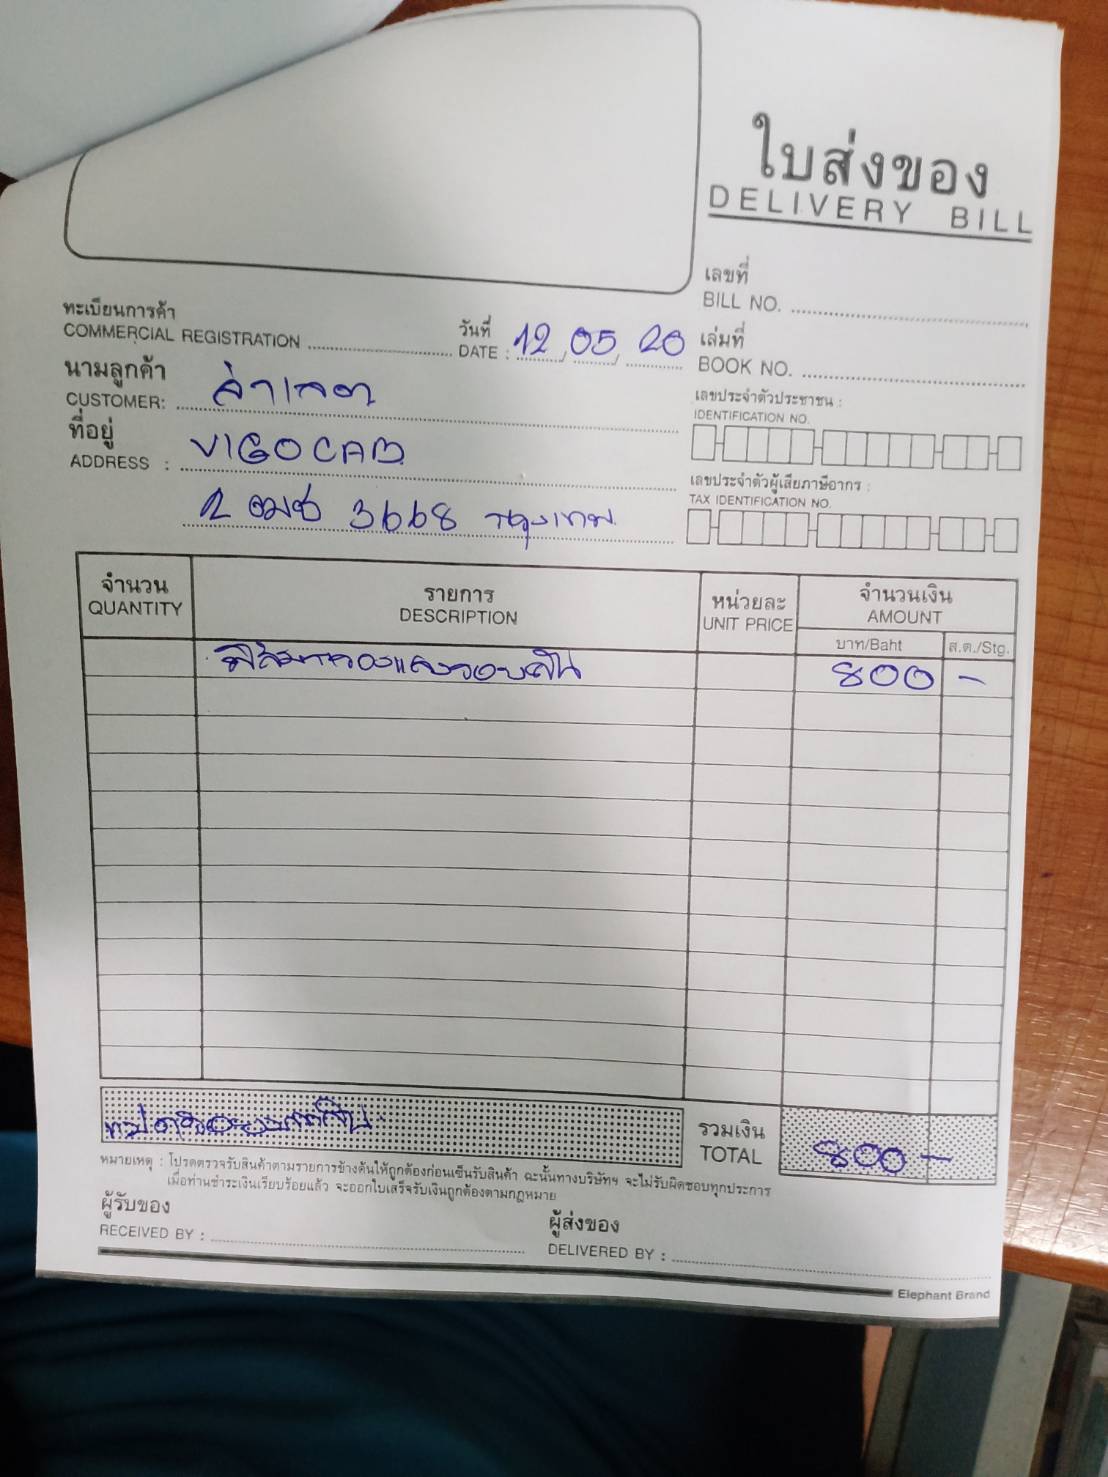 ใบส่งของ
DELIVERY BILL
เลขที่
BILL NO.
ทะเบียนการค้า
COMMERCIAL REGISTRATION
วันที่
DATE : 12 / 05 / 20
เล่มที่
BOOK NO.
นามลูกค้า
CUSTOMER:
เลขประจำตัวประชาชน :
IDENTIFICATION NO.
ที่อยู่
ADDRESS : VIGO CAB
เลขประจำตัวผู้เสียภาษีอากร :
TAX IDENTIFICATION NO.
2 ฒช 3668 กรุงเทพ
จำนวน
QUANTITY
รายการ
DESCRIPTION
หน่วยละ
UNIT PRICE
จำนวนเงิน
AMOUNT
บาท/Baht
ส.ต./Stg.
ฟิล์มกรองแสงรอบคัน 800 -
รวมเงิน
TOTAL 800 -
หมายเหตุ : โปรดตรวจรับสินค้าตามรายการข้างต้นให้ถูกต้องก่อนเซ็นรับสินค้า ฉะนั้นทางบริษัทฯ จะไม่รับผิดชอบทุกประการ
เมื่อท่านชำระเงินเรียบร้อยแล้ว จะออกใบเสร็จรับเงินถูกต้องตามกฎหมาย
ผู้รับของ
RECEIVED BY :
ผู้ส่งของ
DELIVERED BY :
Elephant Brand